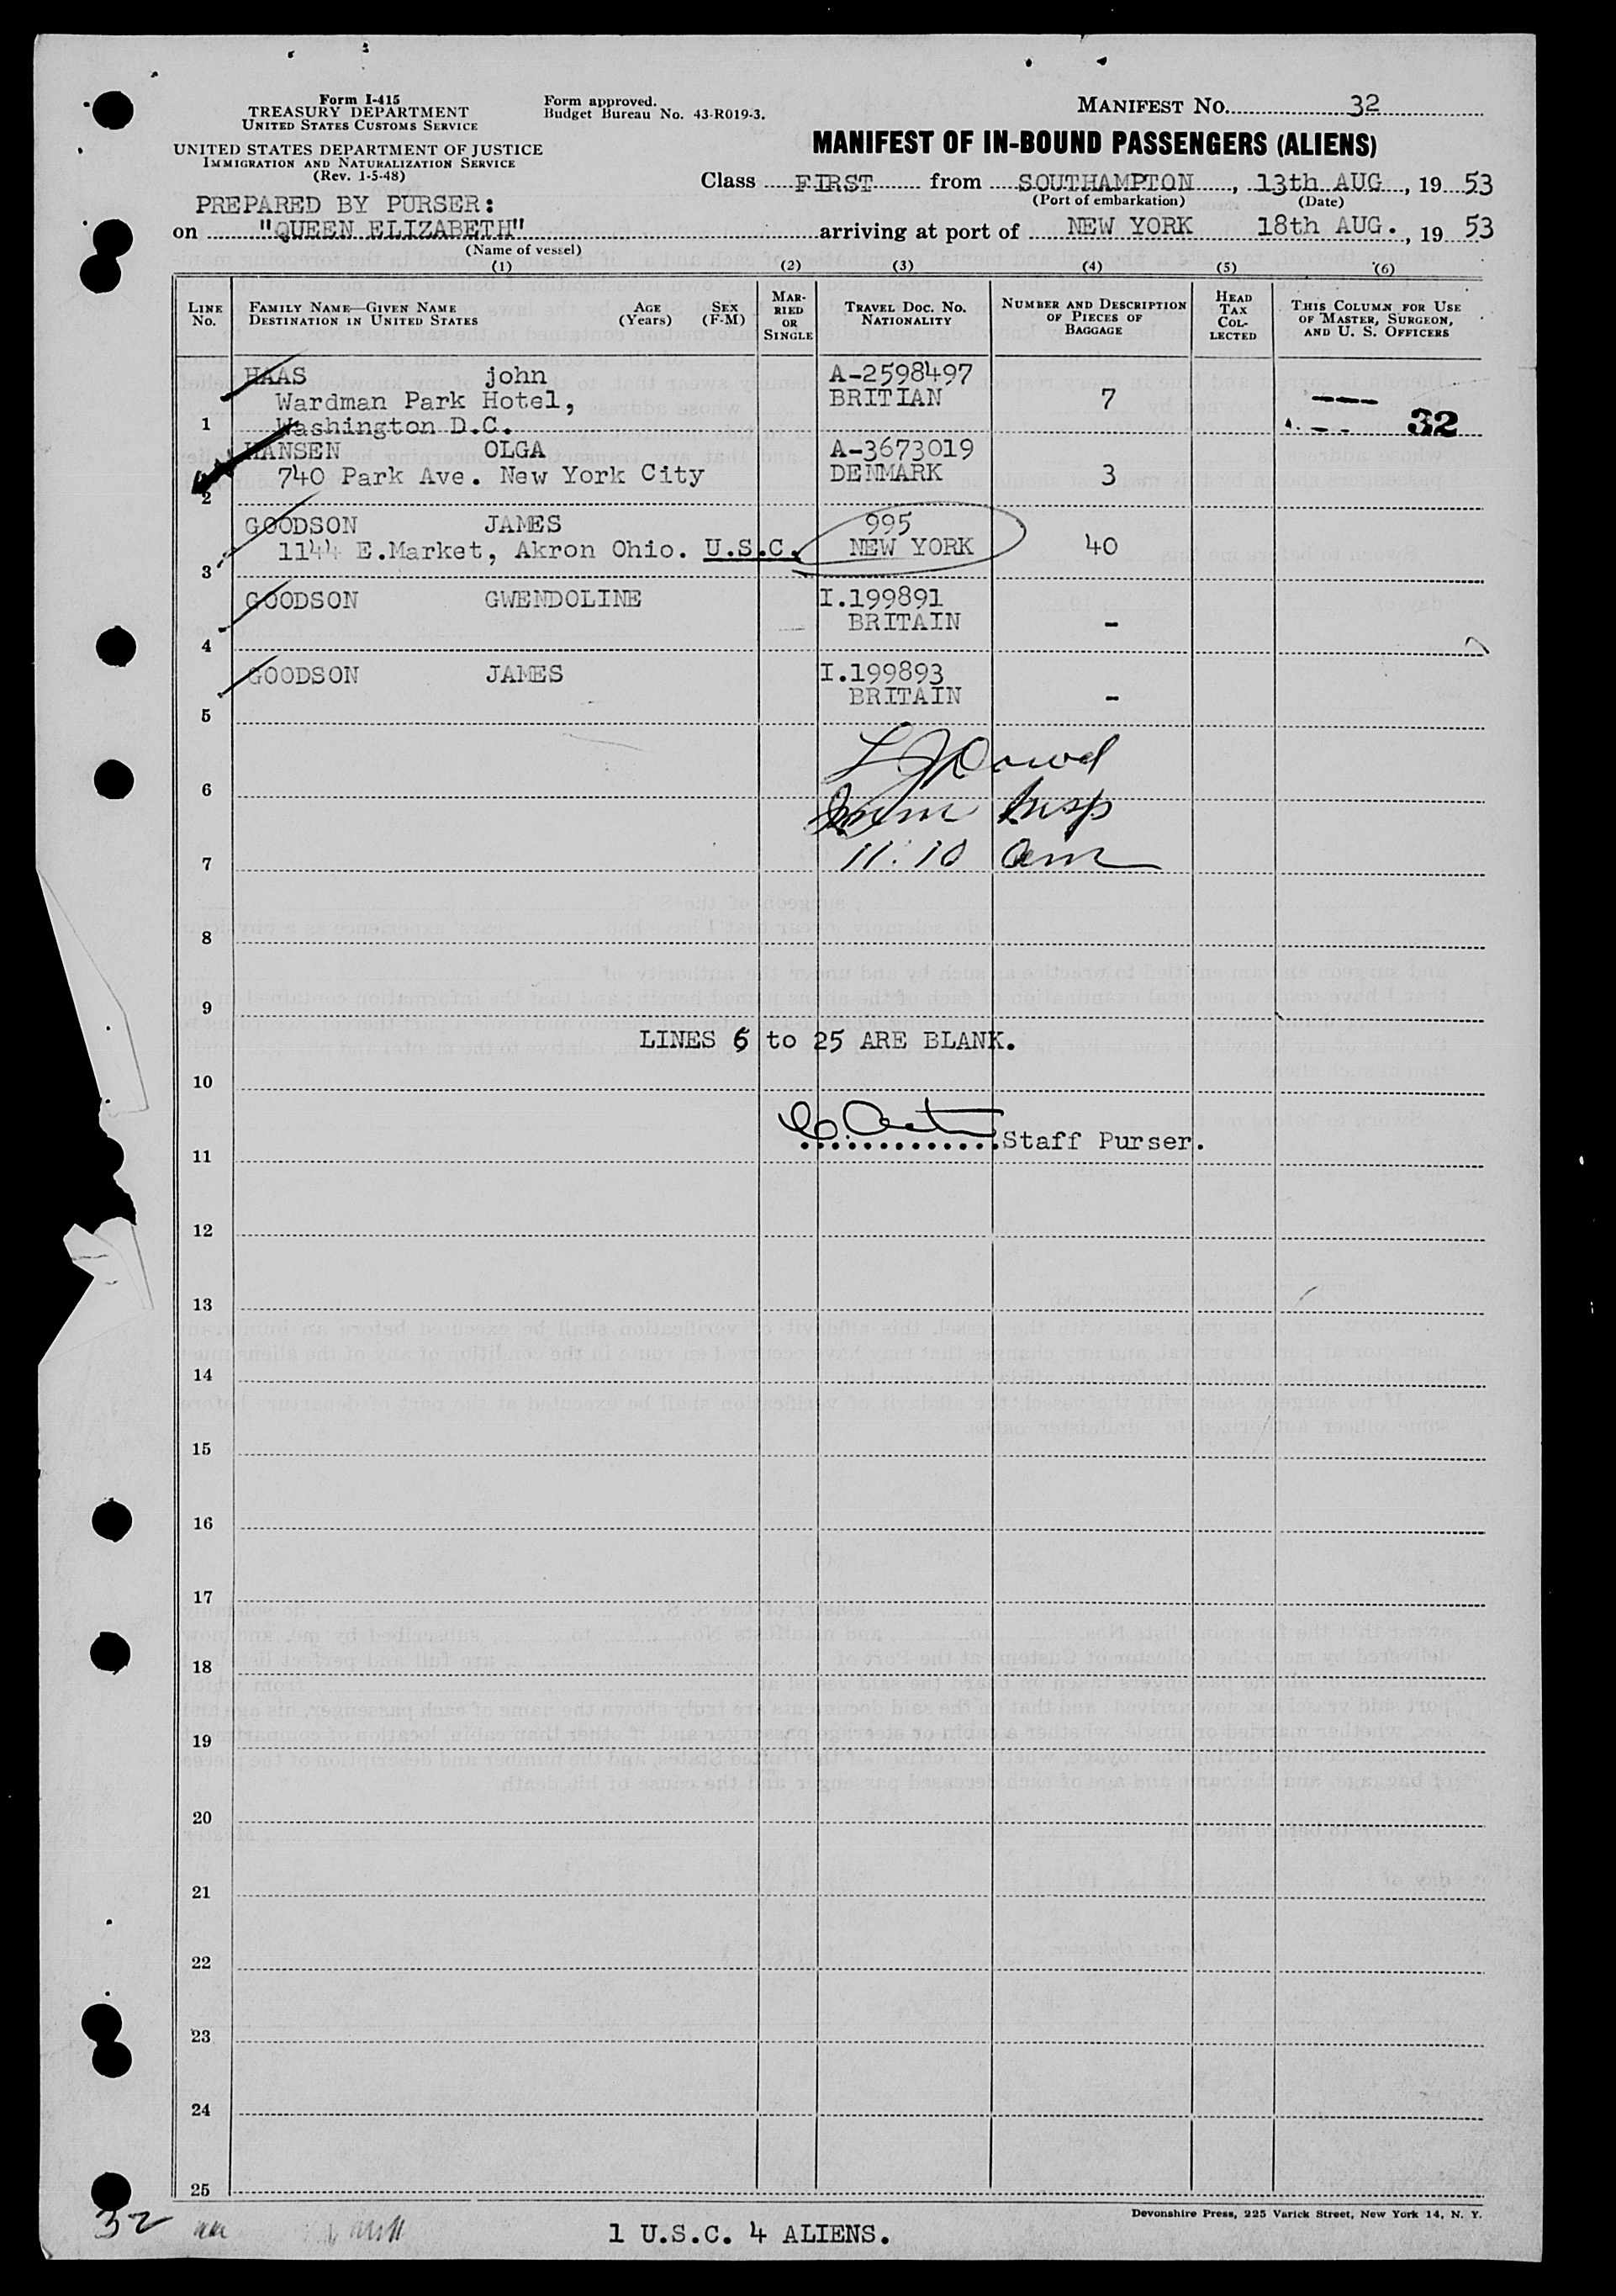 Form I-415
TREASURY DEPARTMENT
UNITED STATES CUSTOMS SERVICE
UNITED STATES DEPARTMENT OF JUSTICE
IMMIGRATION AND NATURALIZATION SERVICE
(Rev. 1-5-48)
Form approved.
Budget Bureau No. 43-R019-3.
MANIFEST NO. 32
MANIFEST OF IN-BOUND PASSENGERS (ALIENS)
Class FIRST from SOUTHAMPTON, 13th AUG, 19 53
(Port of embarkation) (Date)
PREPARED BY PURSER:
on "QUEEN ELIZABETH" arriving at port of NEW YORK 18th AUG., 19 53
(Name of vessel)
(1) (2) (3) (4) (5) (6)
LINE NO.
FAMILY NAME—GIVEN NAME
DESTINATION IN UNITED STATES
AGE (Years)
SEX (F-M)
MARRIED OR SINGLE
TRAVEL DOC. NO. NATIONALITY
NUMBER AND DESCRIPTION OF PIECES OF BAGGAGE
HEAD TAX COLLECTED
THIS COLUMN FOR USE OF MASTER, SURGEON, AND U. S. OFFICERS
HAAS john A-2598497
Wardman Park Hotel, BRITIAN 7 ----
1 Washington D.C. 32
HANSEN OLGA A-3673019
740 Park Ave. New York City DENMARK 3
2
GOODSON JAMES 995
1144 E.Market, Akron Ohio. U.S.C. NEW YORK 40
3
GOODSON GWENDOLINE I.199891
BRITAIN -
4
GOODSON JAMES I.199893
BRITAIN -
5
L J Dowd
6
Imm Insp
11:10 am
7
8
9
LINES 6 to 25 ARE BLANK.
10
Staff Purser.
11
12
13
14
15
16
17
18
19
20
21
22
23
24
25
Devonshire Press, 225 Varick Street, New York 14, N. Y.
32
1 U.S.C. 4 ALIENS.